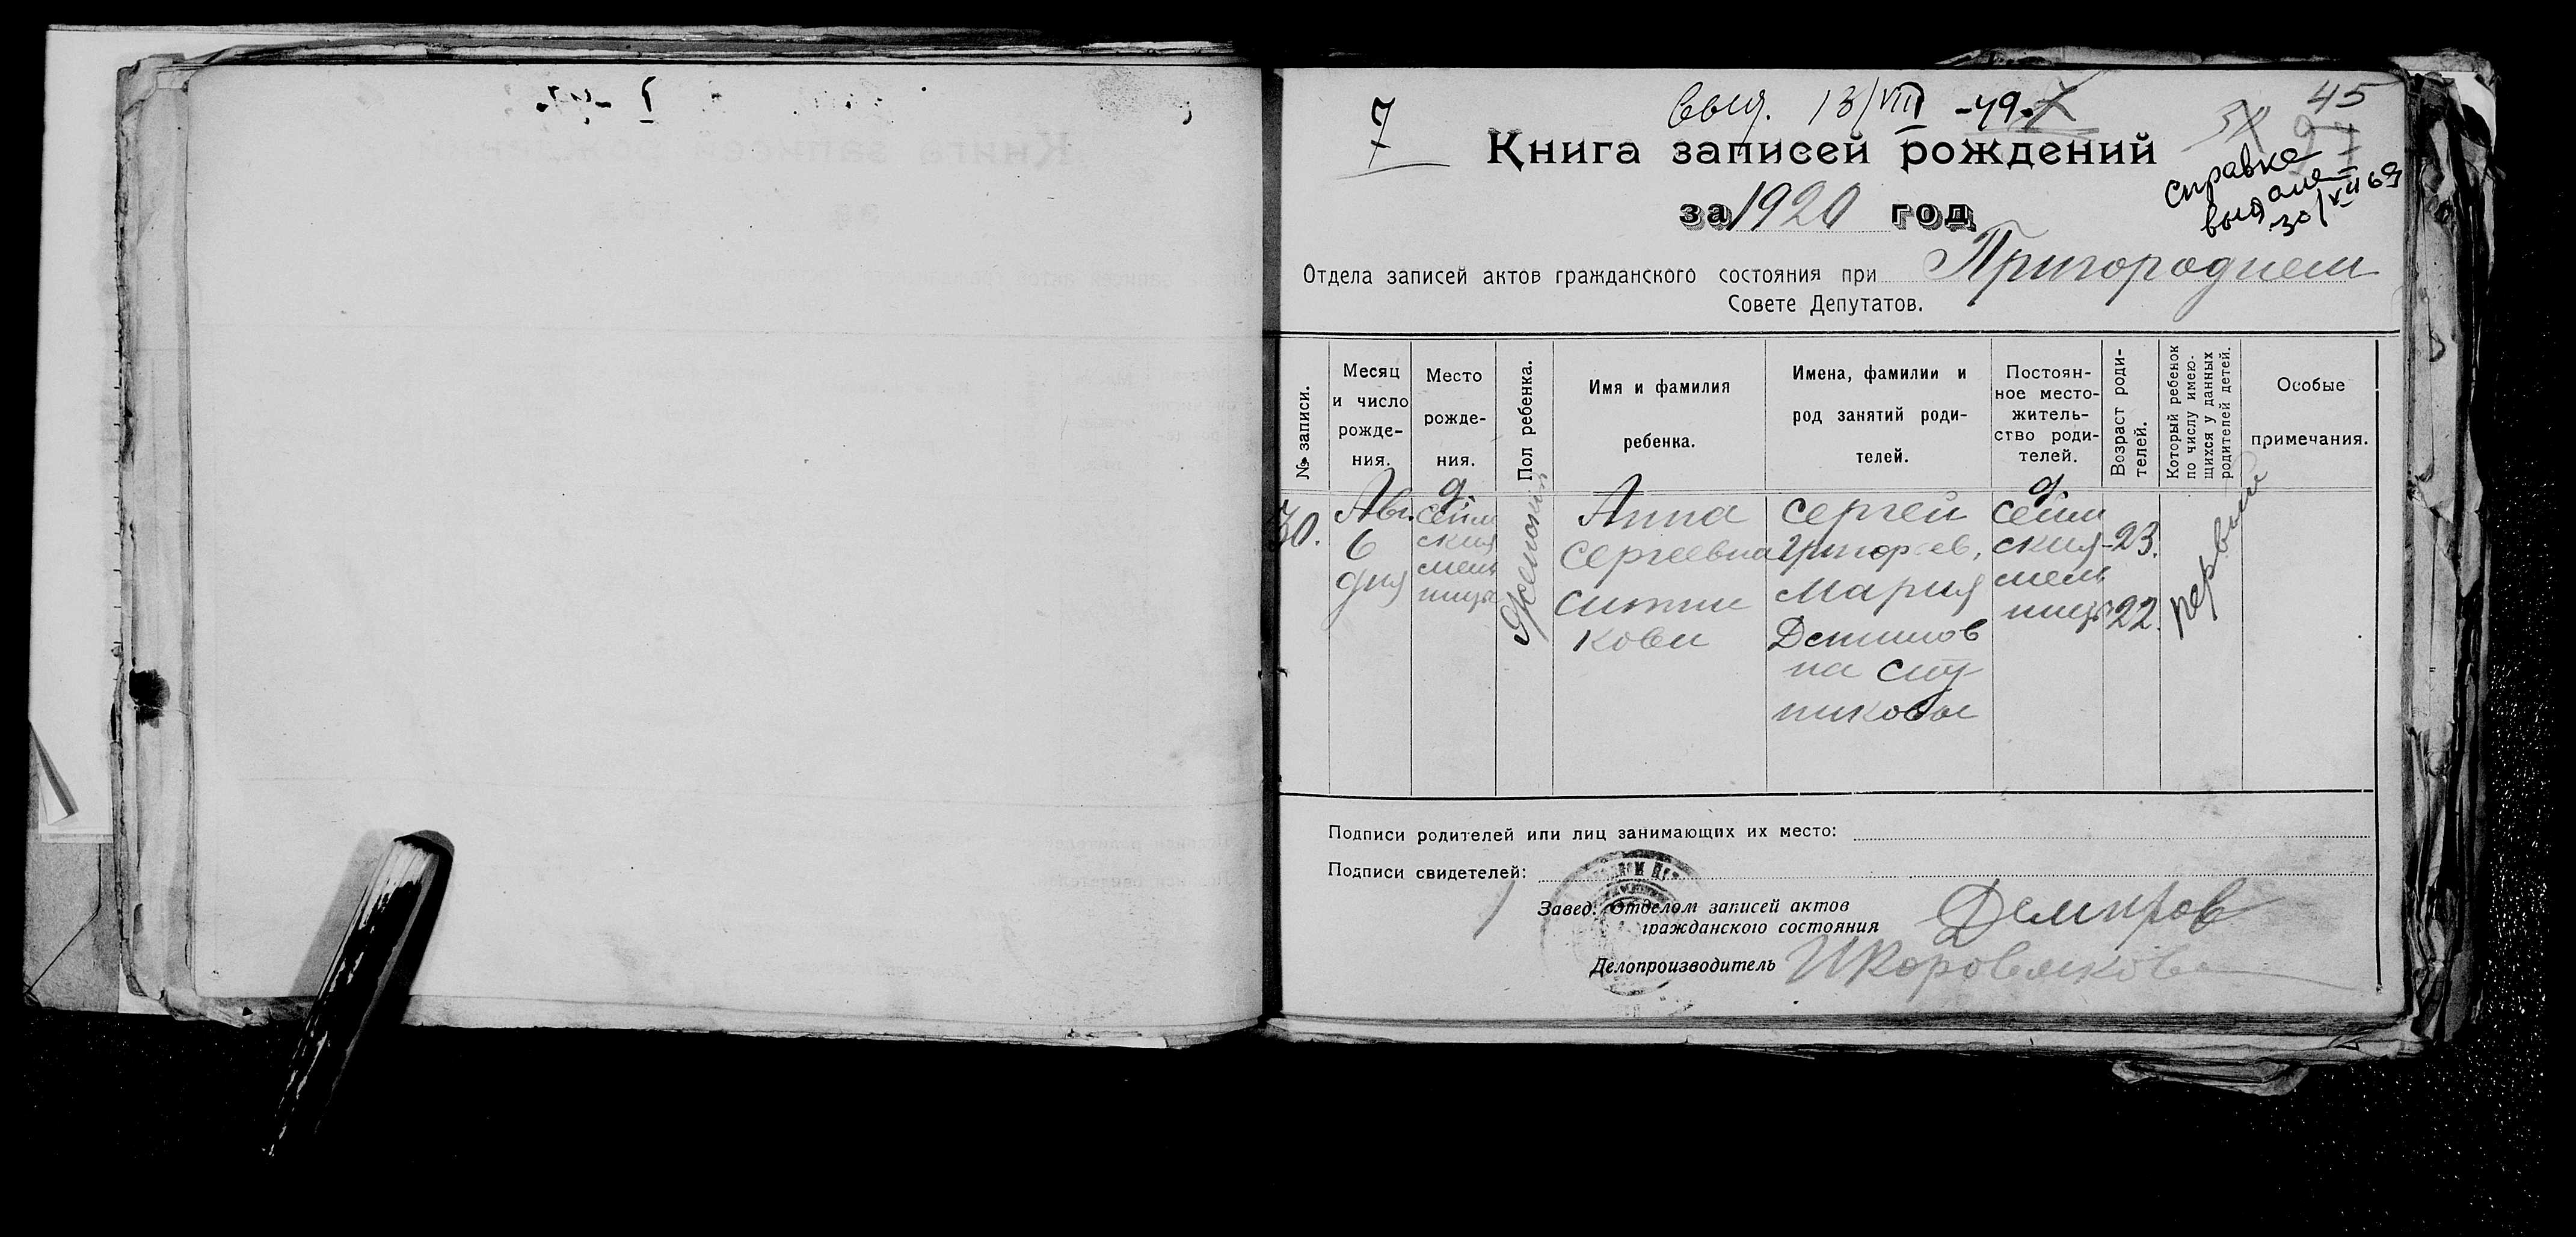 7
выд. 13/VIII -49.
45
Книга записей рождений
справка
выдана
30/VII 69
за 1920 год
Отдела записей актов гражданского состояния при Пригороднем
Совете Депутатов.
№ записи.
Месяц
и число
рожде-
ния.
Место
рожде-
ния.
Пол ребенка.
Имя и фамилия
ребенка.
Имена, фамилии и
род занятий роди-
телей.
Постоян-
ное место-
житель-
ство роди-
телей.
Возраст роди-
телей.
Который ребенок
по числу имею-
щихся у данных
родителей детей.
Особые
примечания.
30.
Авг.
6
дня
д.
сейм
ския
мель
ницы
Женский
Анна
Сергеевна
Ситни
кова
Сергей
Григорьев,
Мария
Детинов
на Сит
никовы
д.
Сейм
ския
мель
ницы
23.
22.
первый
Подписи родителей или лиц занимающих их место:
Подписи свидетелей:
Завед. Отделом записей актов
гражданского состояния
Делопроизводитель